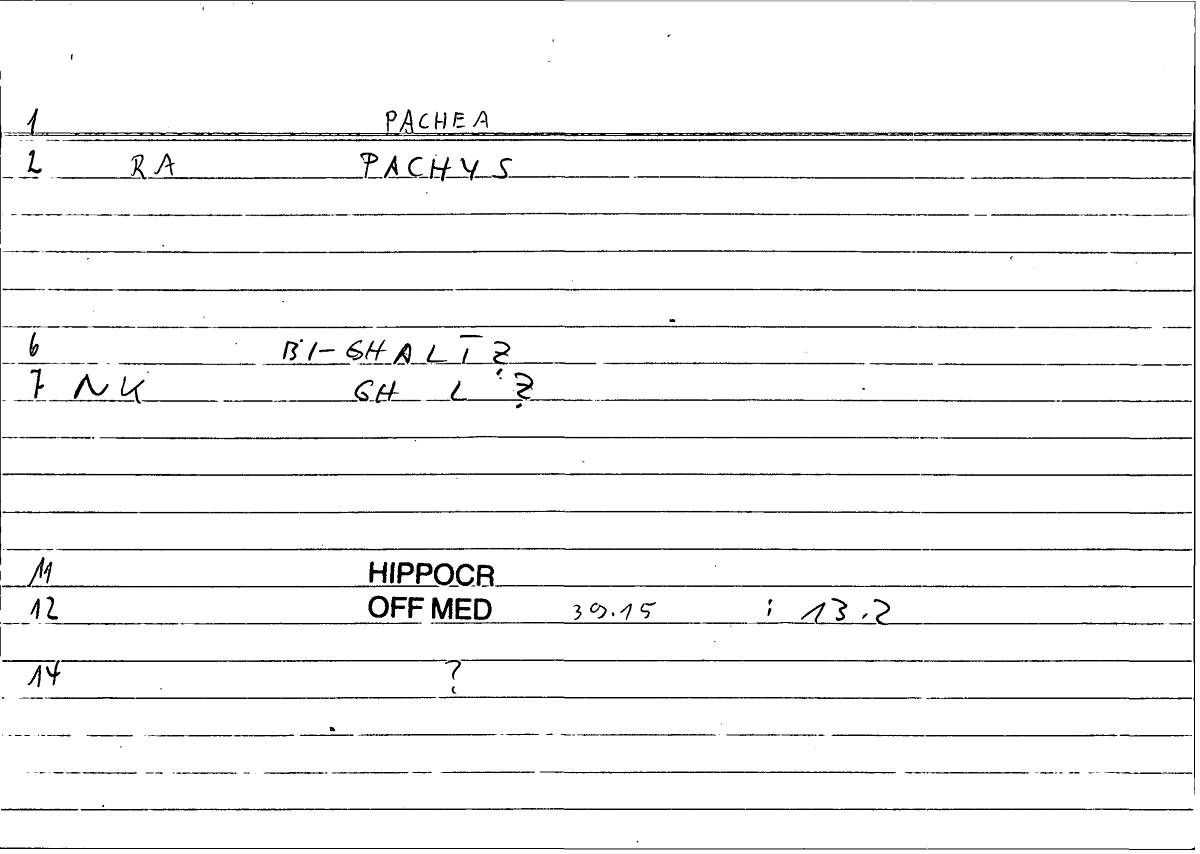 1 PACHEA
2 RA PACHYS
6 BI-GHALĪẒ
7 NK GH L Ẓ
11 HIPPOCR
12 OFF MED 39.15 : 13.2
14 ?